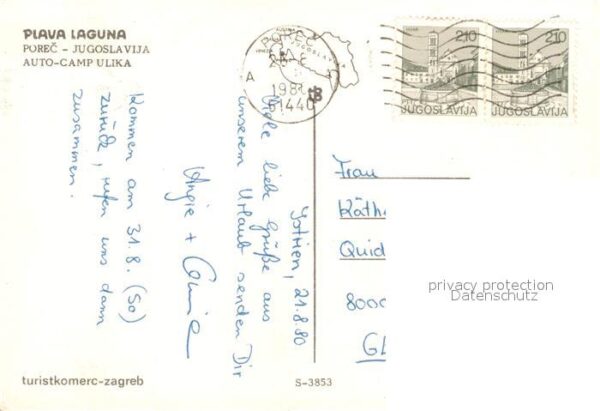 PLAVA LAGUNA
POREČ – JUGOSLAVIJA
AUTO-CAMP ULIKA
POREČ
A
1980
51440
2.10
JUGOSLAVIJA
2.10
JUGOSLAVIJA
Istrien, 21.8.80
Viele liebe Grüße aus
unserem Urlaub senden Dir
Angie +
Kommen am 31.8. (So)
zurück, rufen uns dann
zusammen.
Frau
Käth
Quid
8000
privacy protection
Datenschutz
turistkomerc-zagreb
S-3853